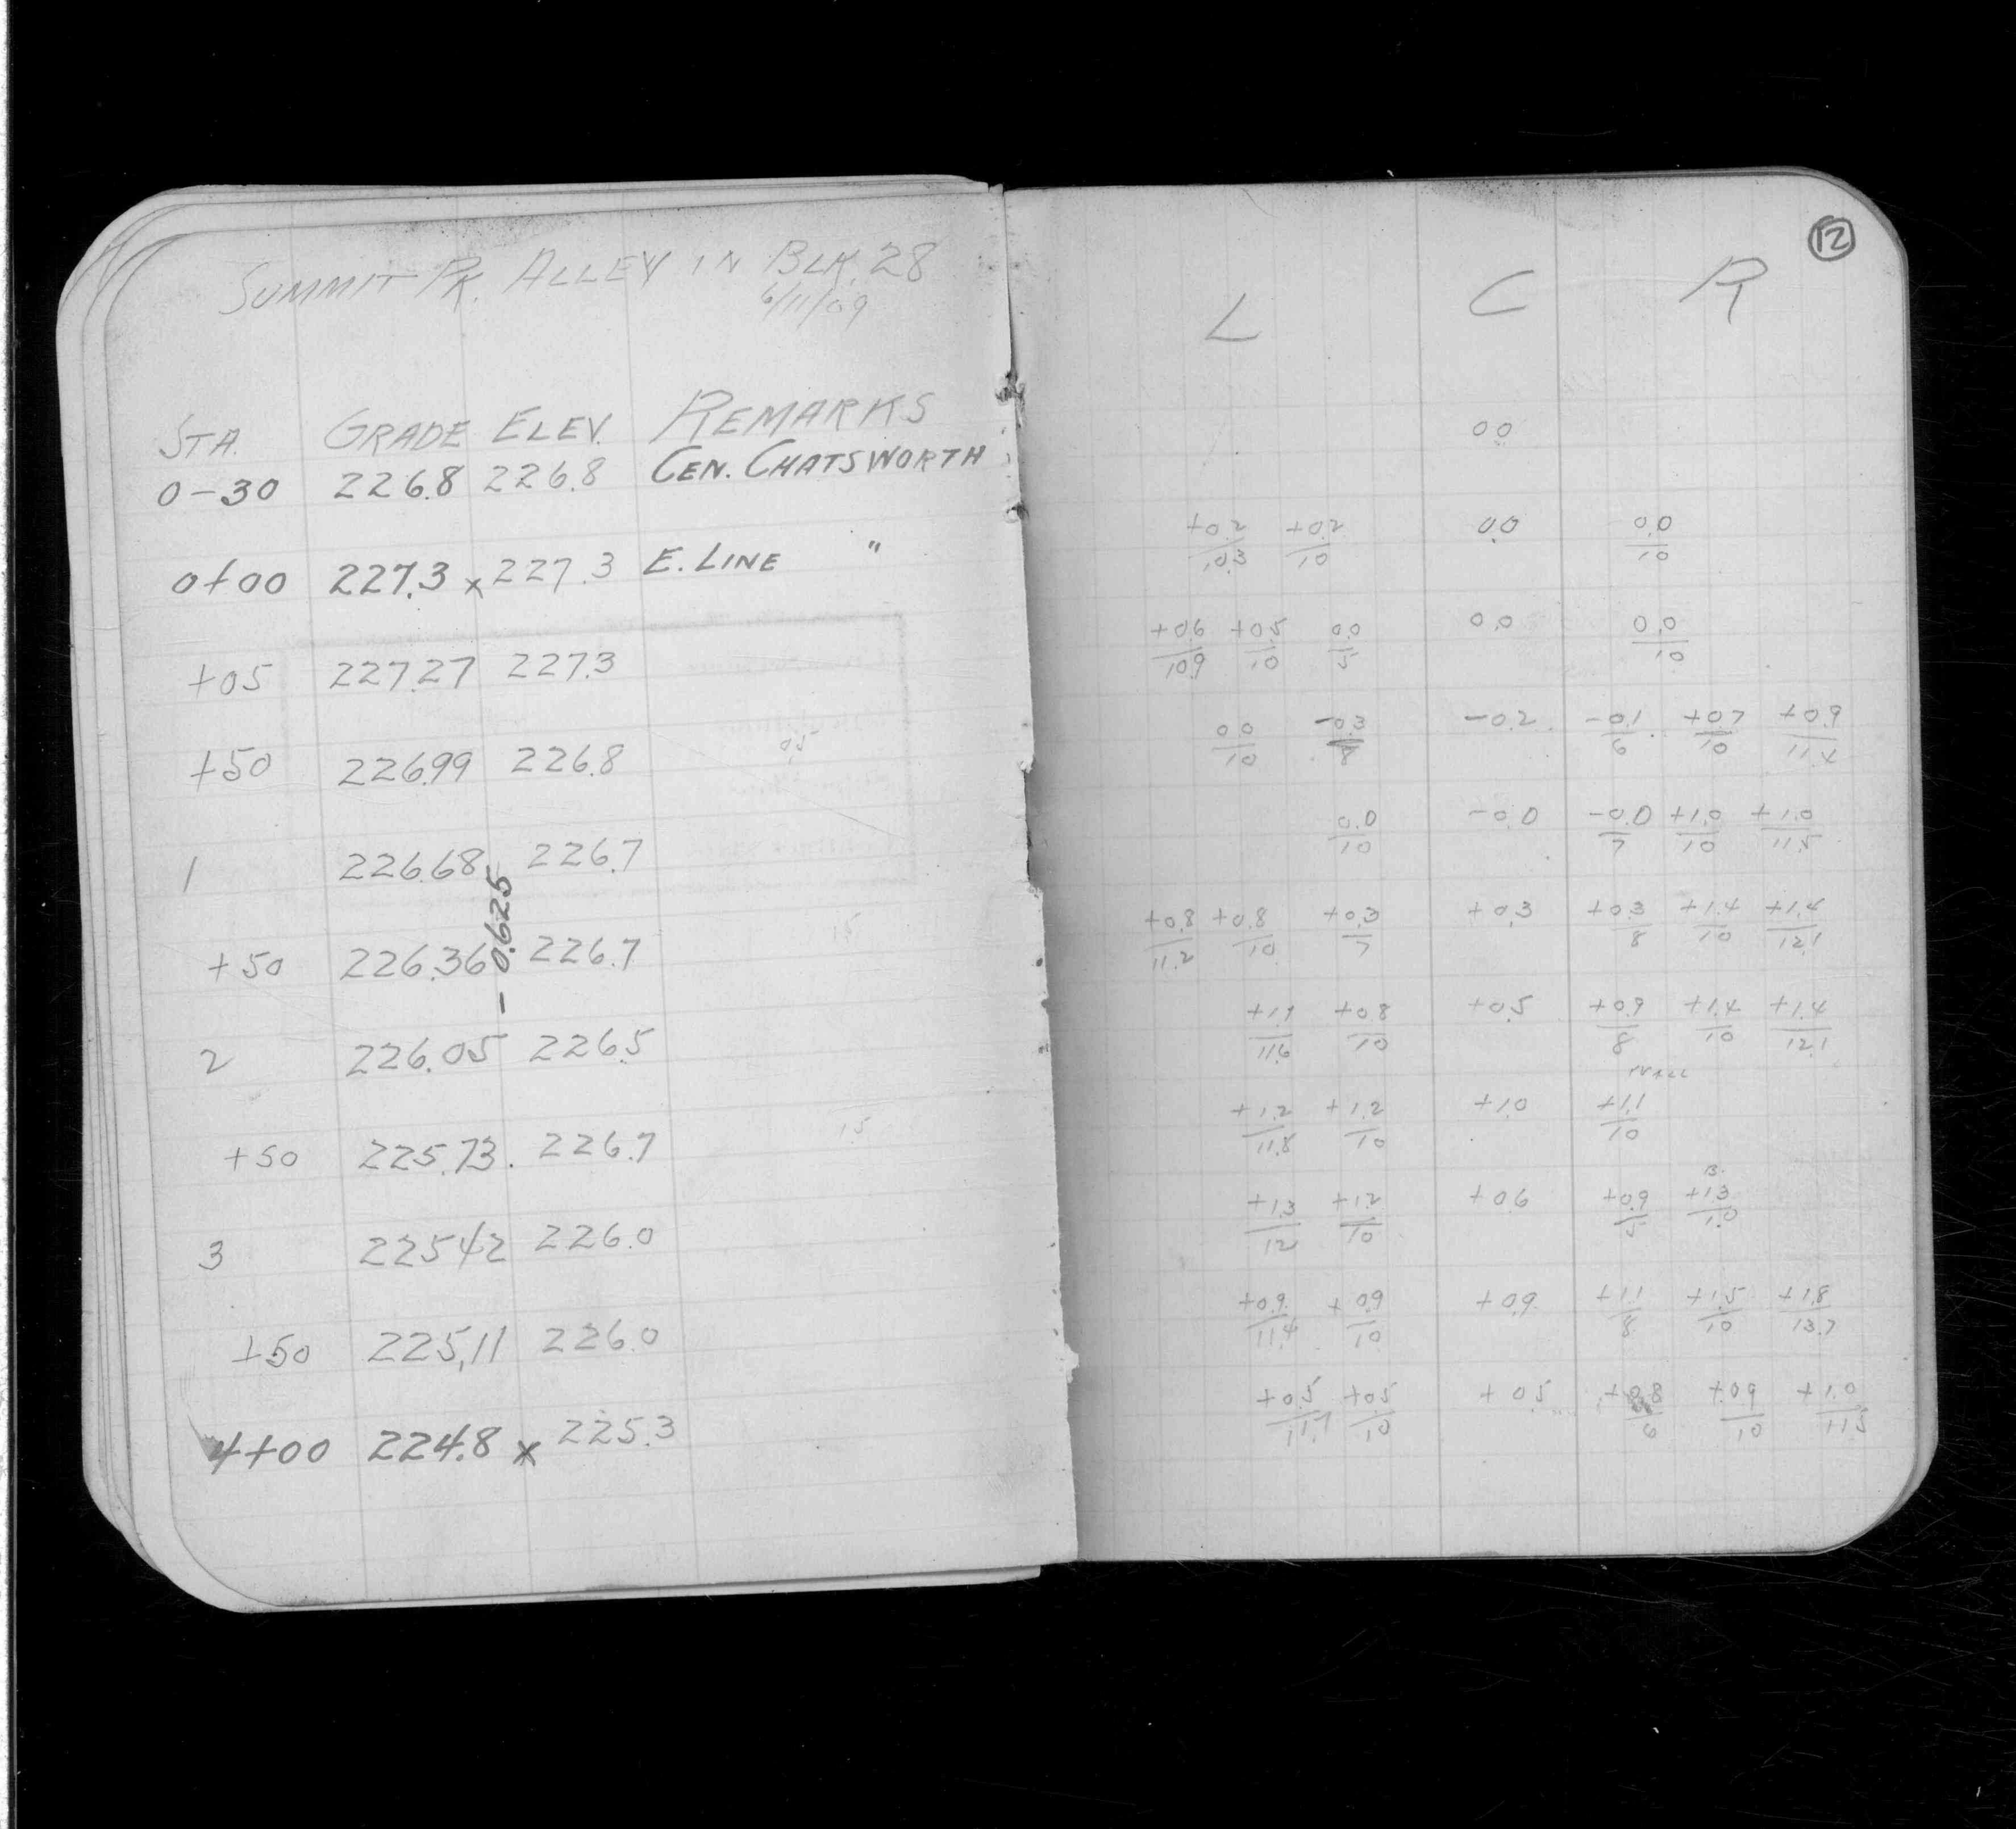 SUMMIT PK. ALLEY IN BLK. 28
6/11/09
STA. GRADE ELEV. REMARKS
0-30 226.8 226.8 CEN. CHATSWORTH
0+00 227.3 x 227.3 E. LINE "
+05 227.27 227.3
+50 226.99 226.8 0.5
1 226.68 226.7
- 0.625
+50 226.36 226.7
2 226.05 226.5
+50 225.73. 226.7 1.5
3 225.42 226.0
+50 225.11 226.0
4+00 224.8 x 225.3
12
L C R
0.0
+0.2 +0.2 0.0 0.0
10.3 10 10
+0.6 +0.5 0.0 0.0 0.0
10.9 10 5 10
0.0 -0.3 -0.2 -0.1 +0.7 +0.9
10 8 6 10 11.4
0.0 -0.0 -0.0 +1.0 +1.0
10 7 10 11.5
+0.8 +0.8 +0.3 +0.3 +0.3 +1.4 +1.4
11.2 10 7 8 10 12.1
+1.1 +0.8 +0.5 +0.9 +1.4 +1.4
11.6 10 8 10 12.1
WALL
+1.2 +1.2 +1.0 +1.1
11.8 10 10
B.
+1.3 +1.2 +0.6 +0.9 +1.3
12 10 5 10
+0.9 +0.9 +0.9 +1.1 +1.5 +1.8
11.4 10 8 10 13.7
+0.5 +0.5 +0.5 +0.8 +0.9 +1.0
11.7 10 6 10 11.5